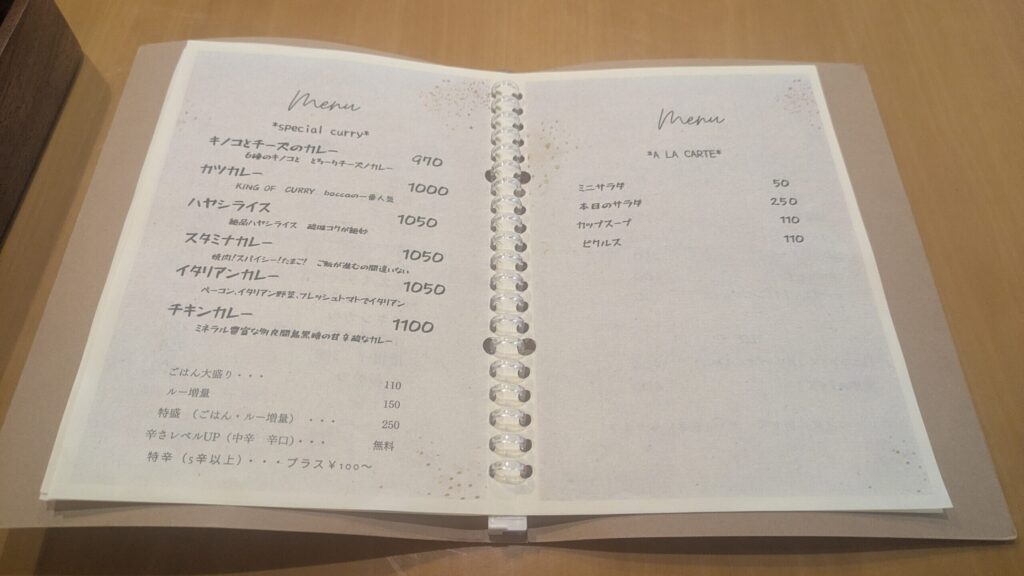 Menu
*special curry*
キノコとチーズのカレー 970
6種のキノコと とろ〜りチーズノカレー
カツカレー 1000
KING OF CURRY boccaの一番人気
ハヤシライス 1050
絶品ハヤシライス 酸味コクが絶妙
スタミナカレー 1050
焼肉!スパイシー!たまご! ご飯が進むの間違いない
イタリアンカレー 1050
ベーコン、イタリアン野菜、フレッシュトマトでイタリアン
チキンカレー 1100
ミネラル豊富な多良間島黒糖の甘辛酸なカレー
ごはん大盛り・・・ 110
ルー増量 150
特盛 (ごはん・ルー増量) ・・・ 250
辛さレベルUP(中辛 辛口)・・・ 無料
特辛(5辛以上)・・・プラス¥100〜
Menu
*A LA CARTE*
ミニサラダ 50
本日のサラダ 250
カップスープ 110
ピクルス 110